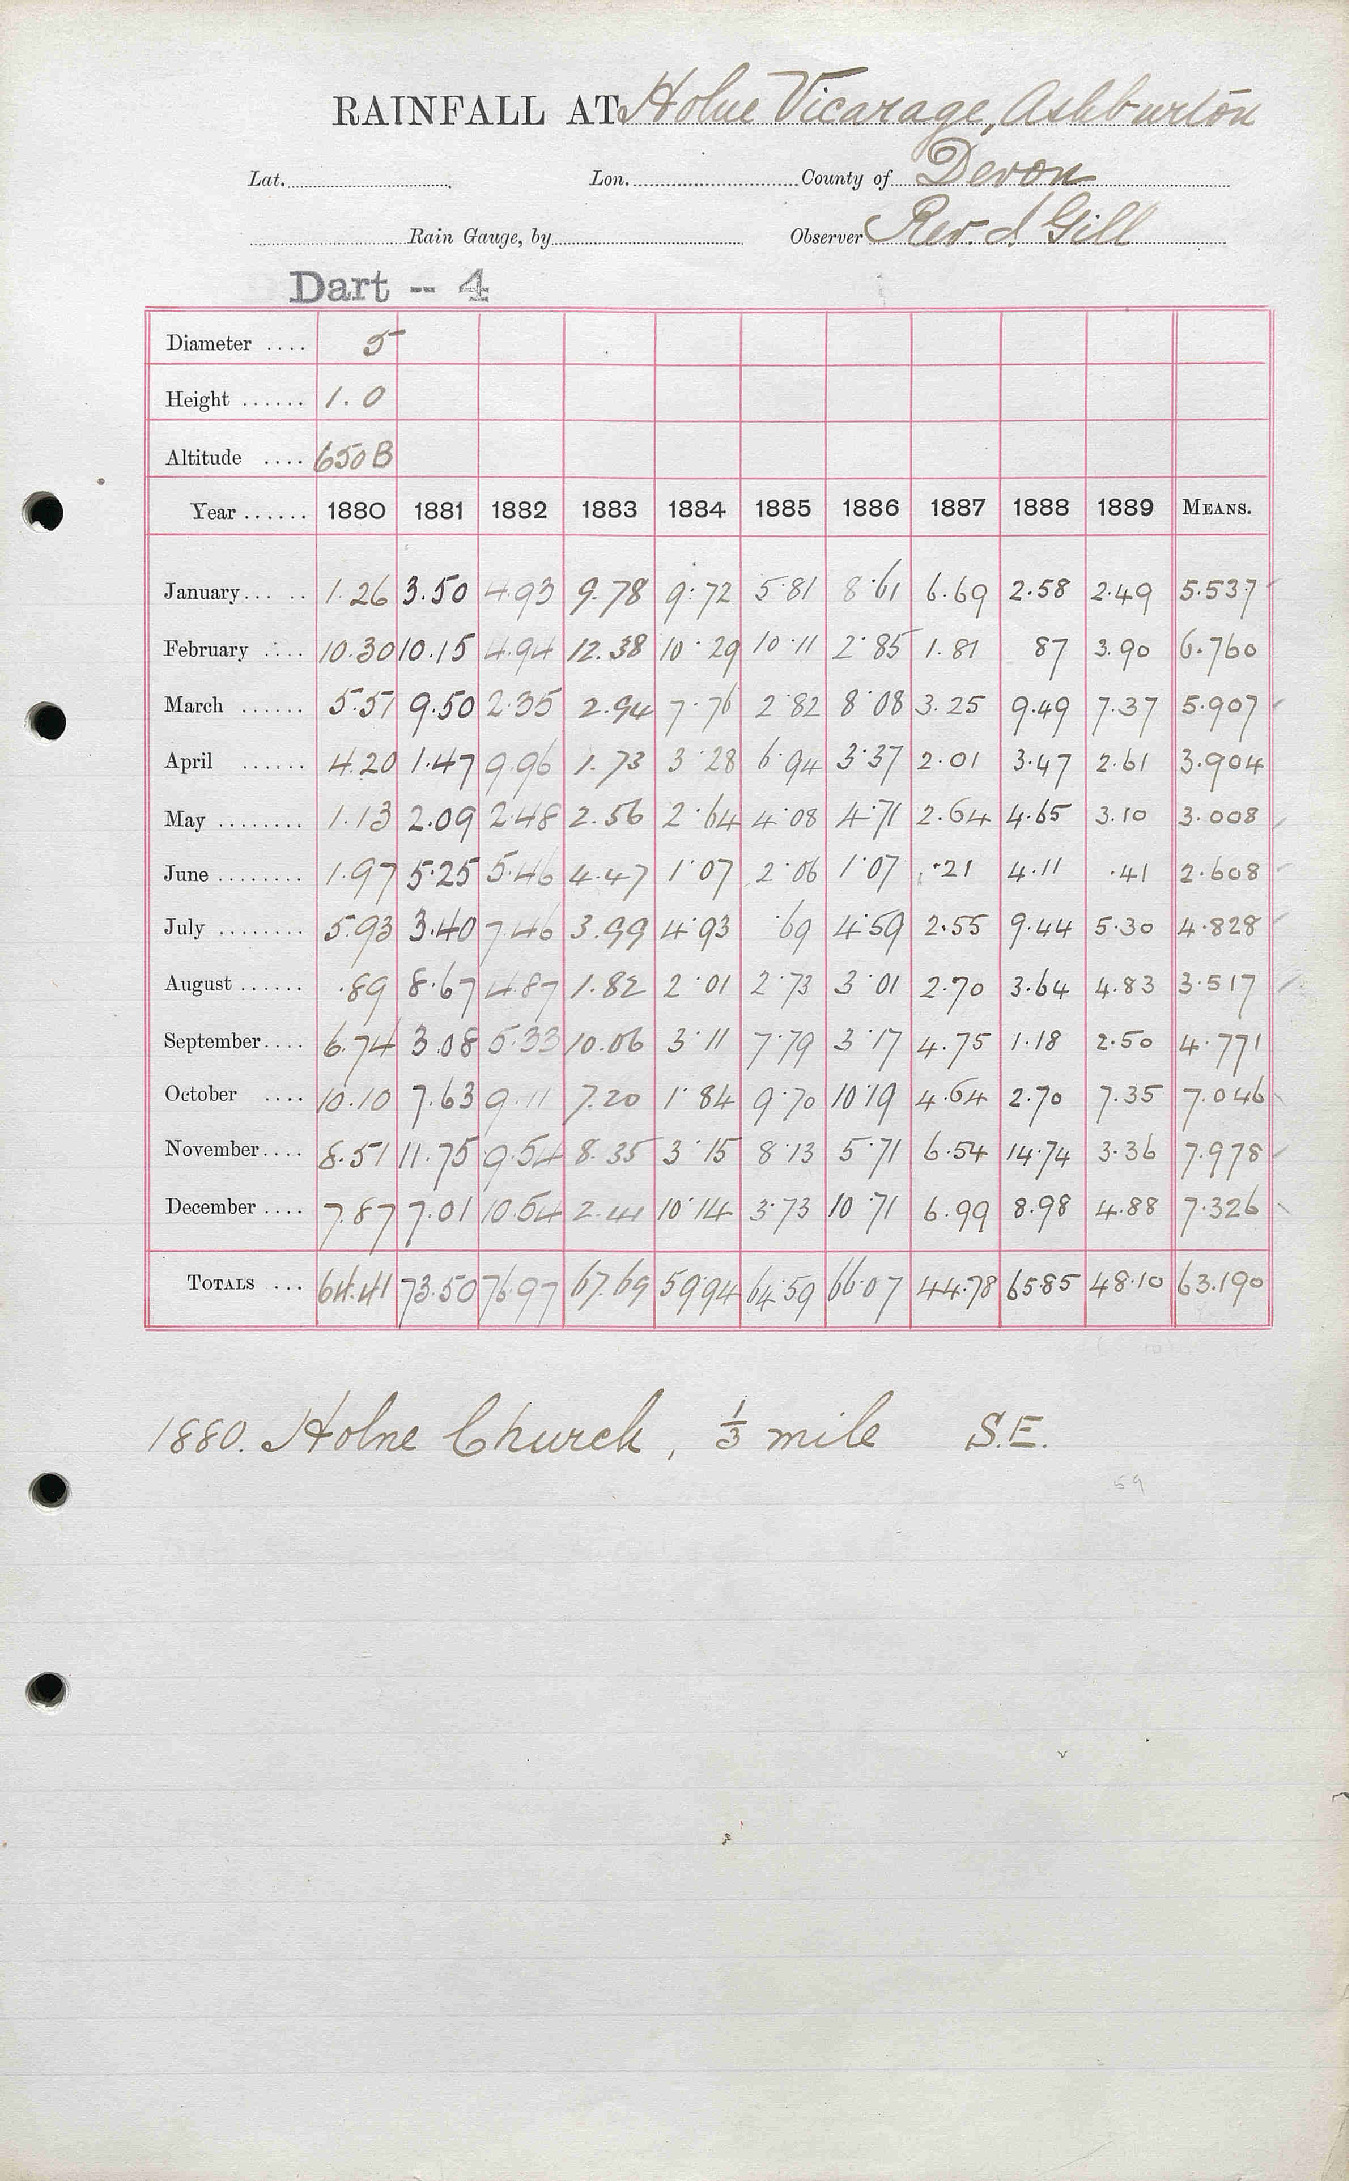 RAINFALL AT Holne Vicarage, Ashburton
Lat. Lon. County of Devon
Rain Gauge, by Observer Rev. J. Gill
Dart -- 4
Diameter .... 5
Height ...... 1.0
Altitude .... 650B
Year ...... 1880 1881 1882 1883 1884 1885 1886 1887 1888 1889 MEANS.
January ..... 1.26 3.50 4.93 9.78 9.72 5.81 8.61 6.69 2.58 2.49 5.537
February .... 10.30 10.15 4.94 12.38 10.29 10.11 2.85 1.81 87 3.90 6.760
March ...... 5.51 9.50 2.35 2.94 7.76 2.82 8.08 3.25 9.49 7.37 5.907
April ...... 4.20 1.47 9.96 1.73 3.28 6.94 3.37 2.01 3.47 2.61 3.904
May ........ 1.13 2.09 2.48 2.56 2.64 4.08 4.71 2.64 4.65 3.10 3.008
June ........ 1.97 5.25 5.46 4.47 1.07 2.06 1.07 .21 4.11 .41 2.608
July ........ 5.93 3.40 7.46 3.99 4.93 .69 4.59 2.55 9.44 5.30 4.828
August ...... .89 8.67 4.87 1.82 2.01 2.73 3.01 2.70 3.64 4.83 3.517
September.... 6.74 3.08 5.33 10.06 3.11 7.79 3.17 4.75 1.18 2.50 4.771
October .... 10.10 7.63 9.11 7.20 1.84 9.70 10.19 4.64 2.70 7.35 7.046
November.... 8.51 11.75 9.54 8.35 3.15 8.13 5.71 6.54 14.74 3.36 7.978
December .... 7.87 7.01 10.54 2.41 10.14 3.73 10.71 6.99 8.98 4.88 7.326
TOTALS ... 64.41 73.50 76.97 67.69 59.94 64.59 66.07 44.78 65.85 48.10 63.190
1880. Holne Church, 1/3 mile S.E.
59